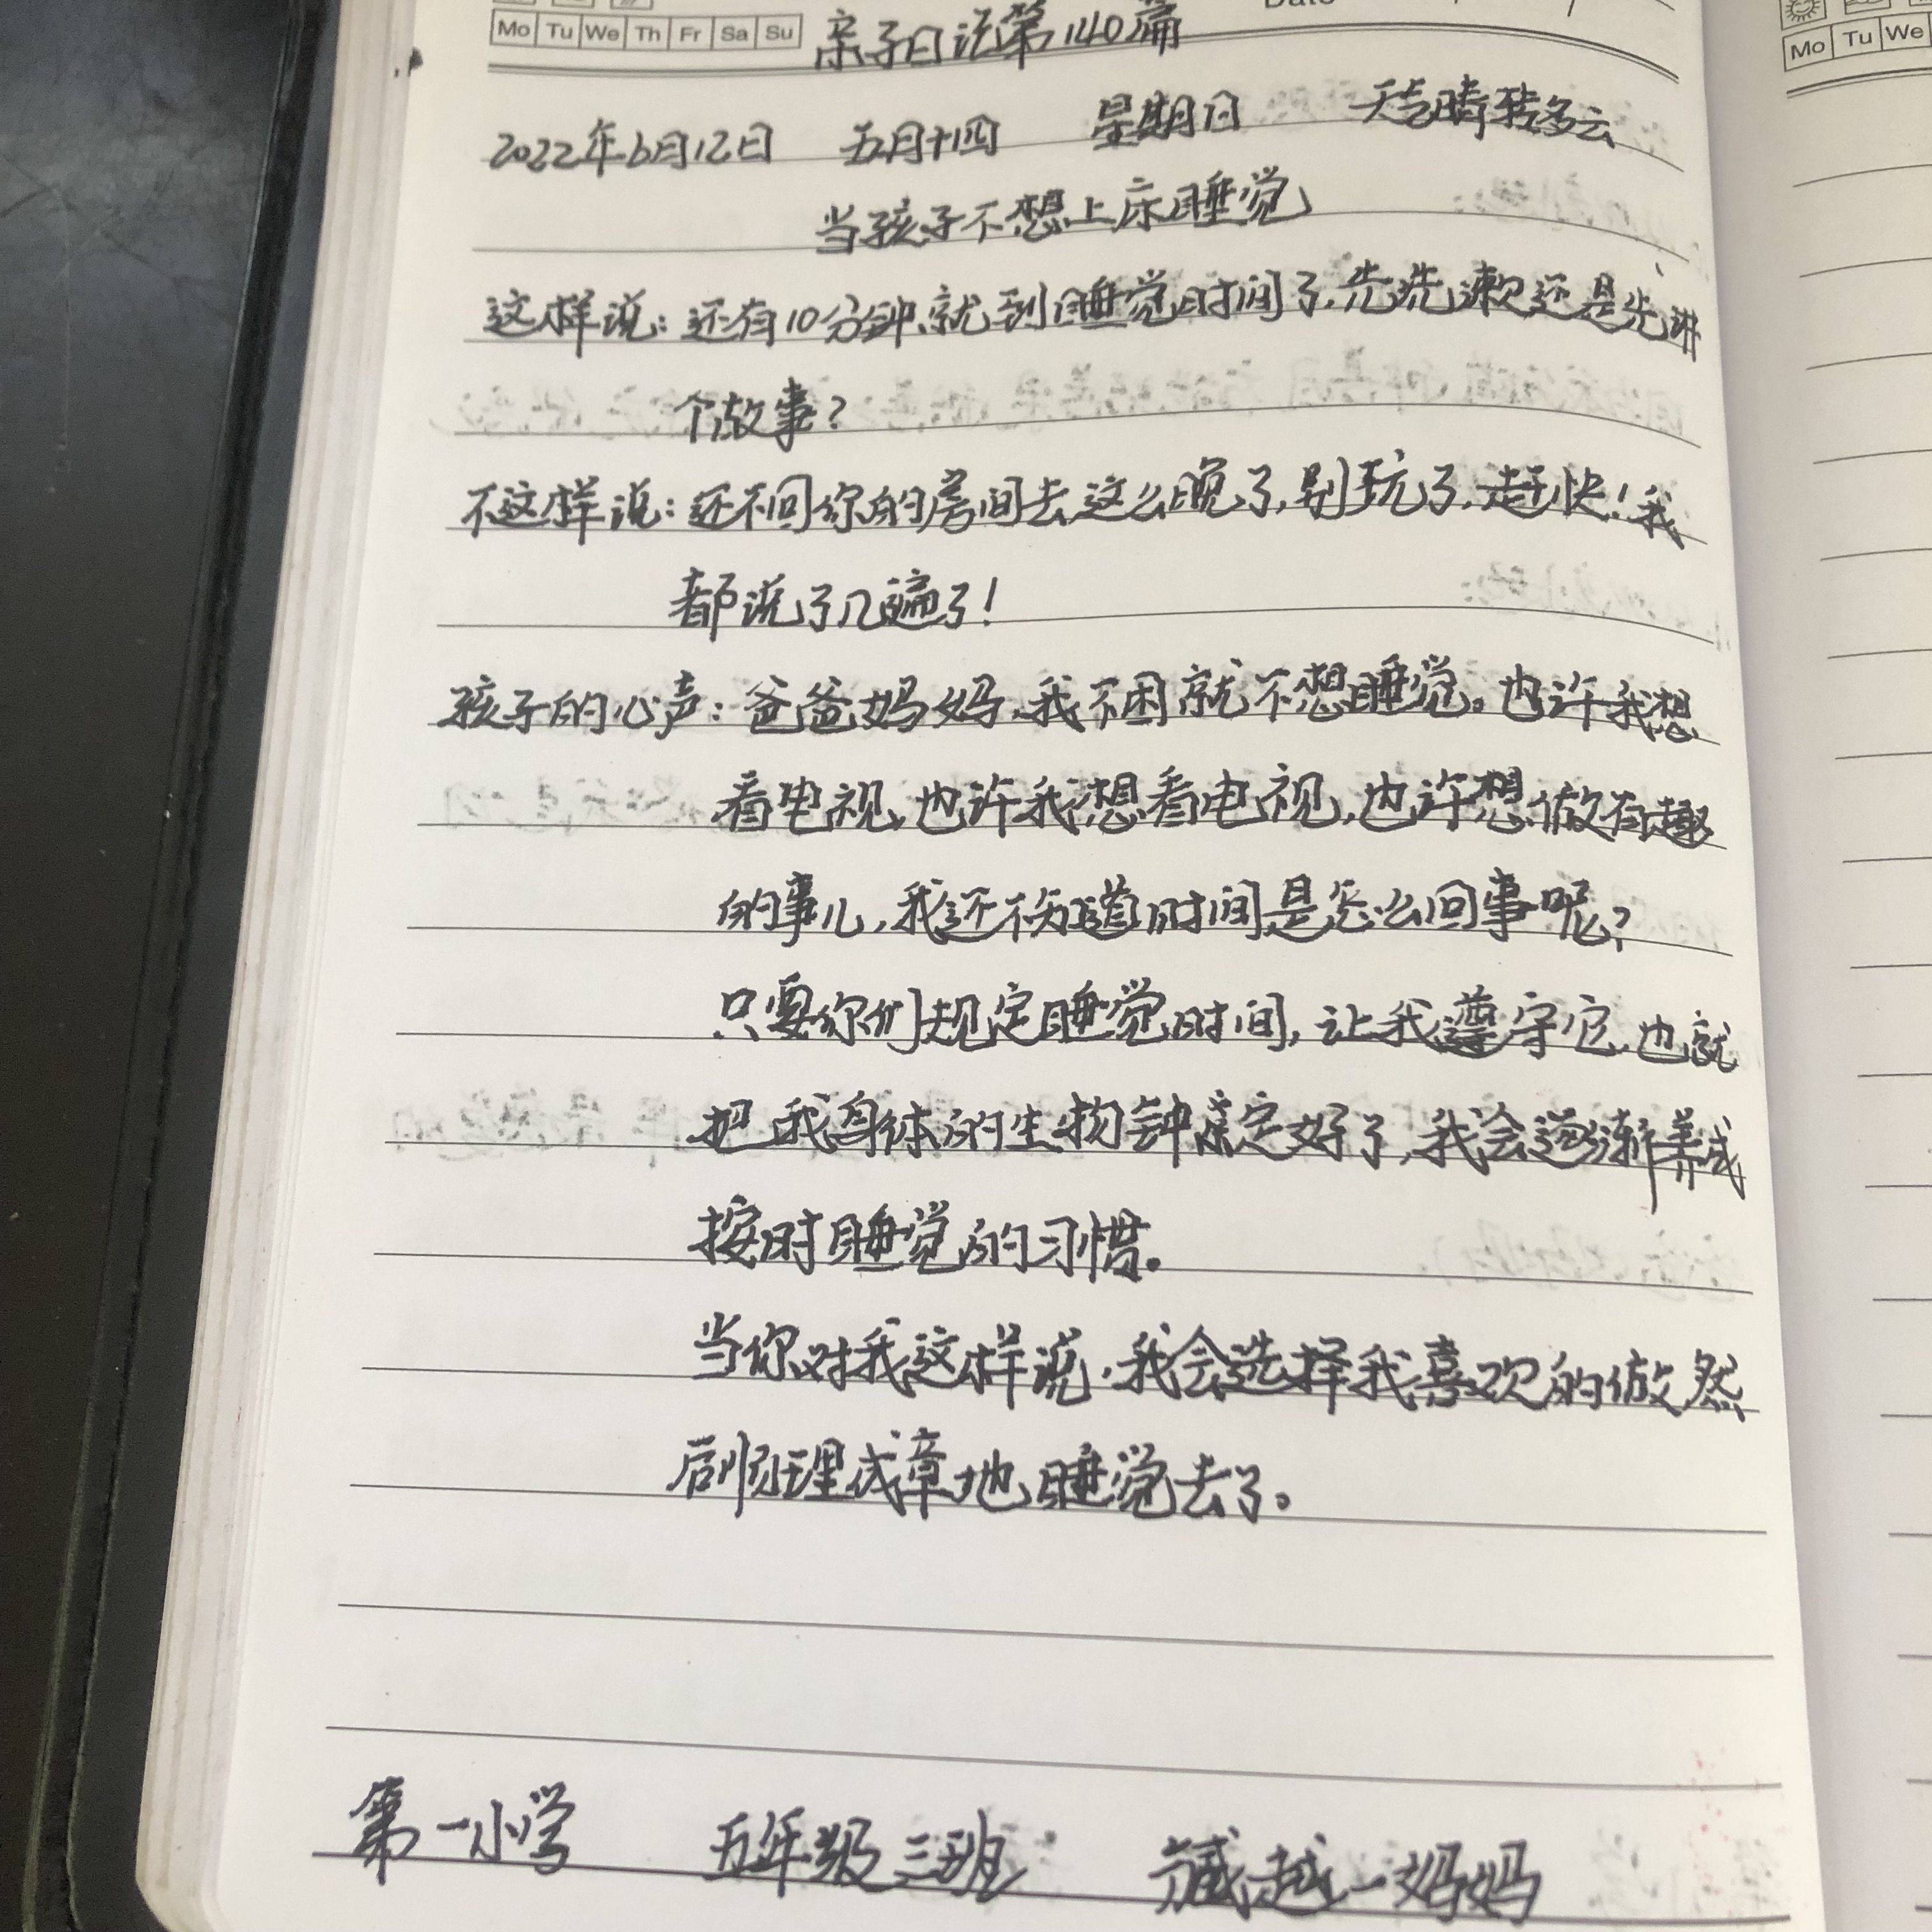 Mo Tu We Th Fr Sa Su
Date
亲子日记第140篇
Mo Tu We
2022年6月12日 五月十四 星期日 天气晴转多云
当孩子不想上床睡觉
这样说：还有10分钟,就到睡觉时间了,先洗漱还是先讲
个故事？
不这样说：还不回你的房间去,这么晚了,别玩了,赶快！我
都说了几遍了！
孩子的心声：爸爸妈妈,我不困就不想睡觉。也许我想
看电视,也许我想看电视,也许想做有趣
的事儿,我还不知道时间是怎么回事呢？
只要你们规定睡觉时间,让我遵守它,也就
把我身体的生物钟定好了,我会逐渐养成
按时睡觉的习惯。
当你对我这样说,我会选择我喜欢的做然
后顺理成章地睡觉去了。
第一小学 五年级三班 臧越一妈妈